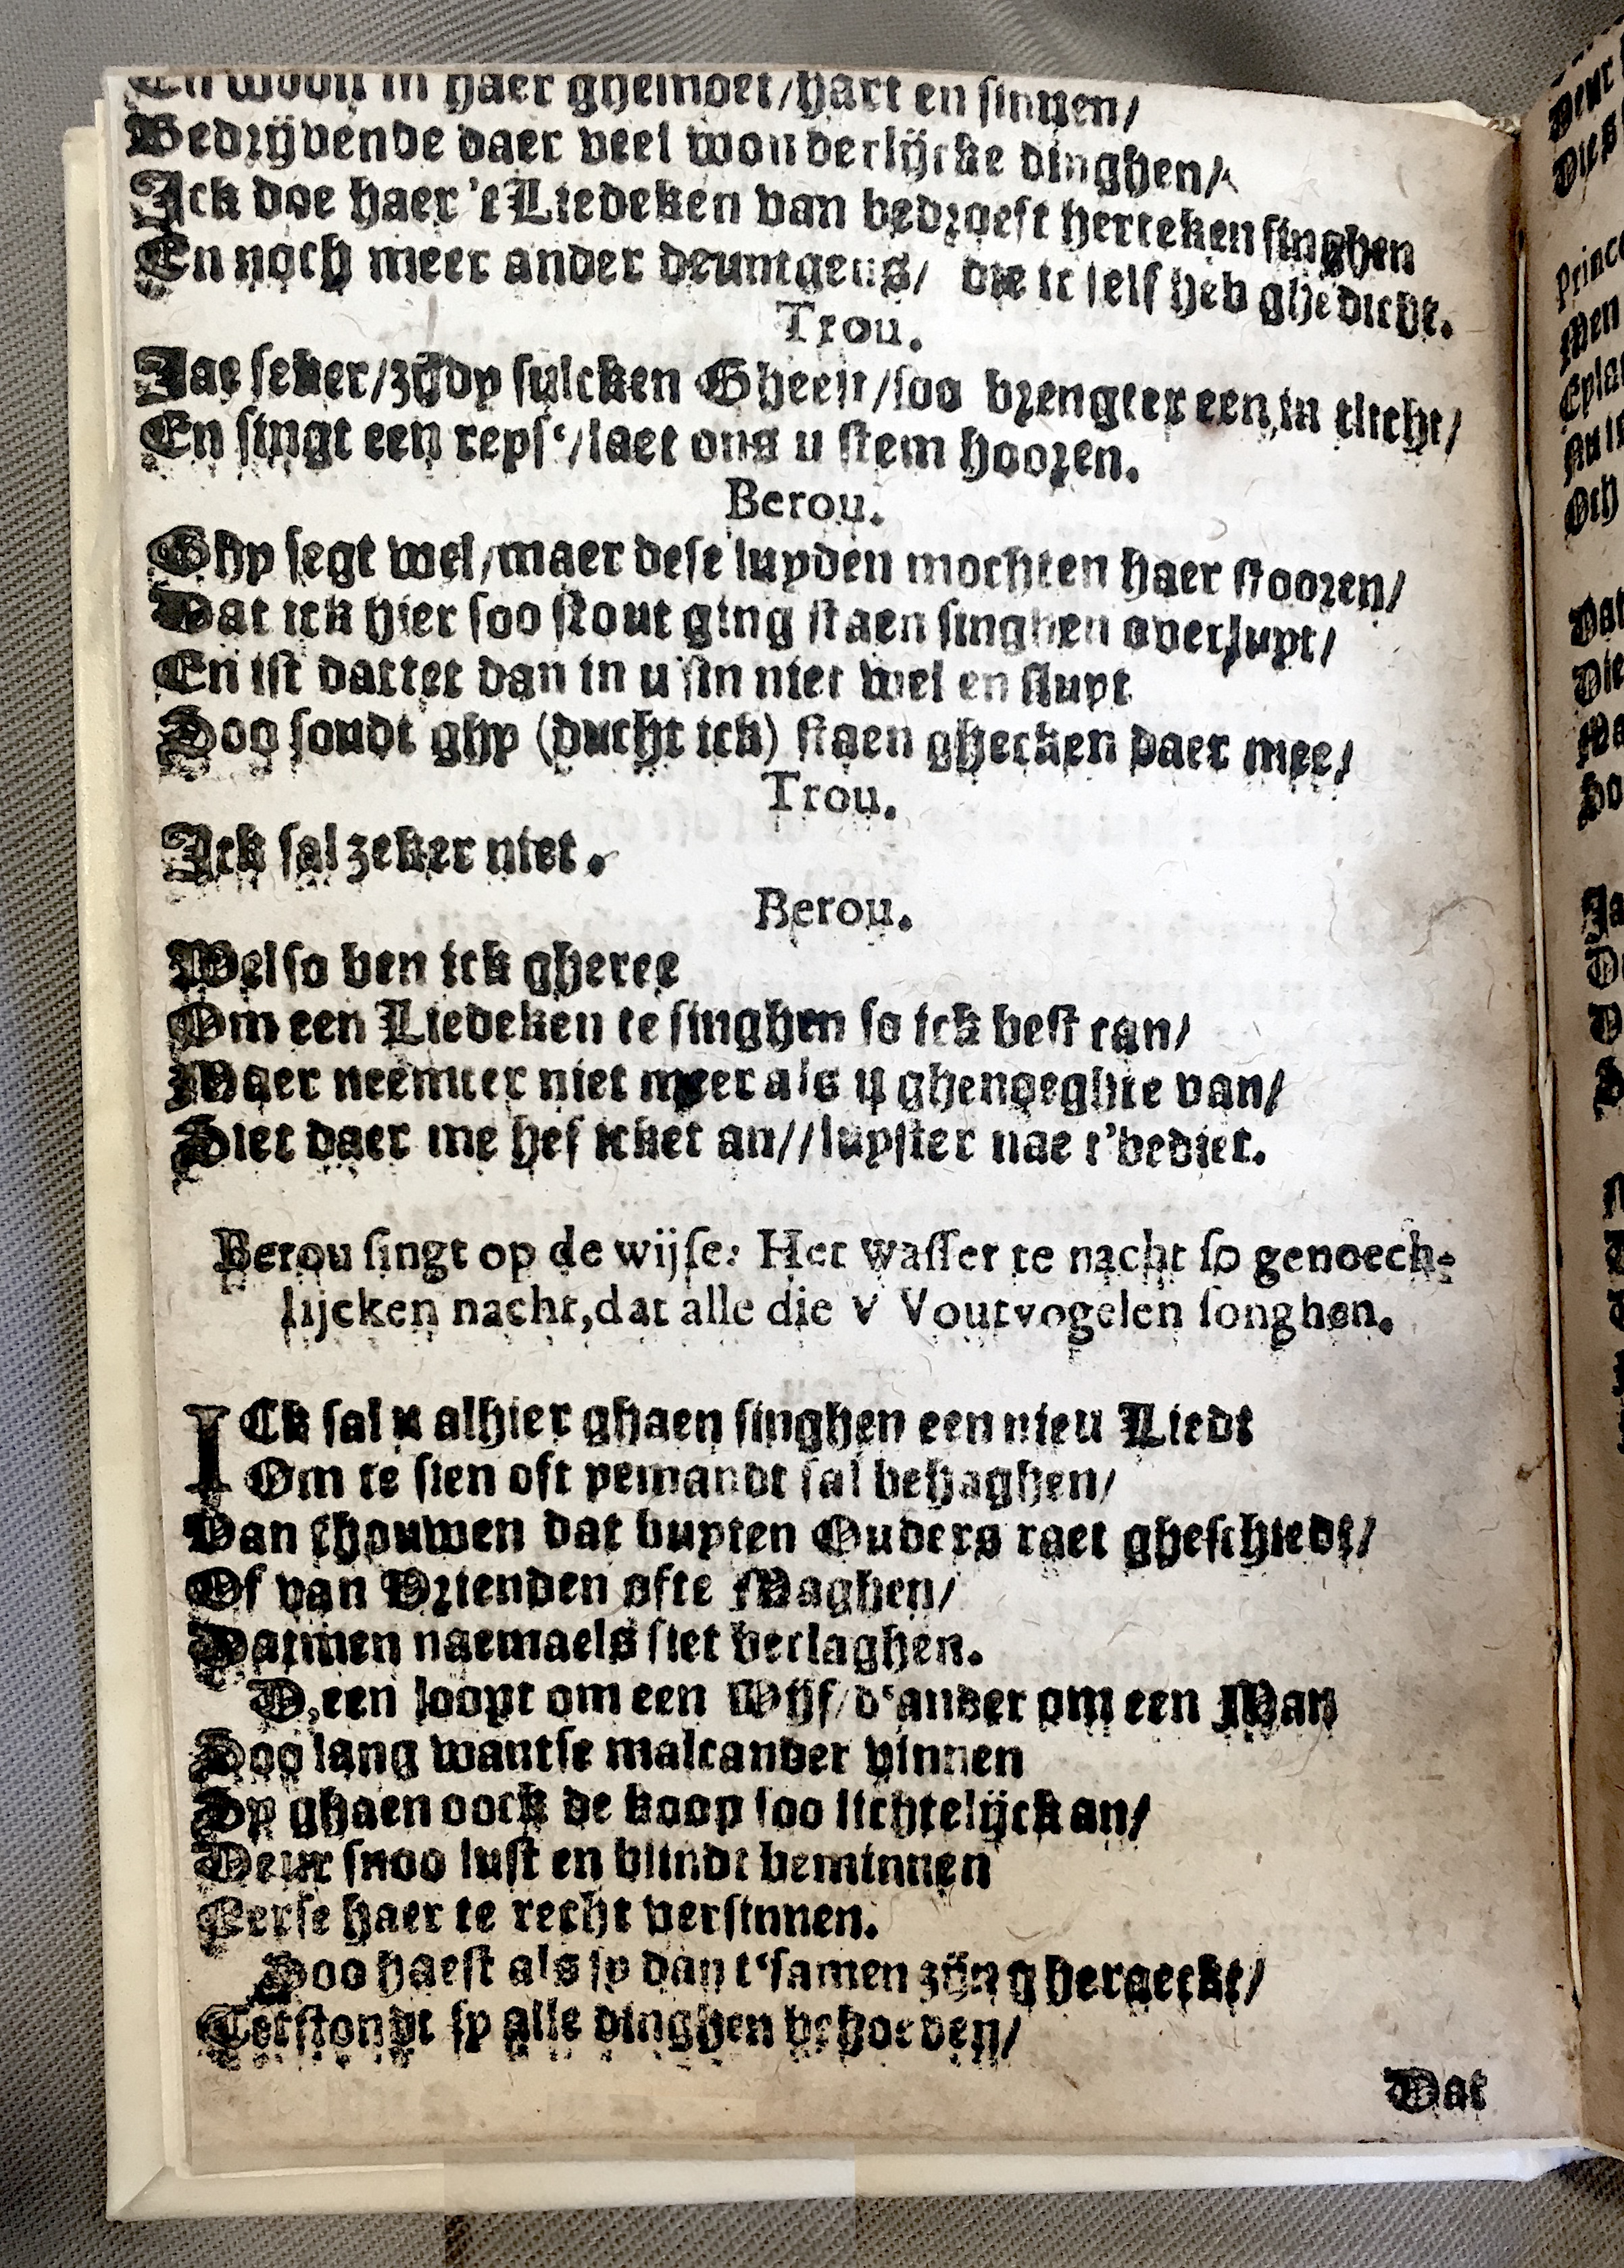 En woon in haer ghemoet/hart en sinnen/
Bedrijvende daer veel wonderlijcke dinghen/
Ick doe haer 't Liedeken van bedroeft herteken singhen
En noch meer ander deuntgens/ die ic self heb ghedicht.
Trou.
Jae seker/zijdy sulcken Gheest/soo brengter een in tlicht/
En singt een reys'/laet ons u stem hooren.
Berou.
Ghy segt wel/maer dese luyden mochten haer stooren/
Dat ick hier soo stout ging staen singhen overluyt/
En ist dattet dan in u sin niet wel en sluyt
Soo soudt ghy (ducht ick) staen ghecken daer mee/
Trou.
Ick sal zeker niet.
Berou.
Wel so ben ick gheree
Om een Liedeken te singhen so ick best can/
Maer neemter niet meer als u ghenoeghte van/
Siet daer me hef icket an//luyster nae t'bediet.
Berou singt op de wijse: Het wasser te nacht so genoech-
lijcken nacht,dat alle die VVoutvogelen songhen.
ICk sal u alhier ghaen singhen een nieu Liedt
Om te sien oft yemandt sal behaghen/
Van thouwen dat buyten Ouders raet gheschiedt/
Of van Vrienden ofte Maghen/
Datmen naemaels siet beclaghen.
D,een loopt om een Wijf/d'ander om een Man
Soo lang wantse malcander vinnen
Sy ghaen oock de koop soo lichtelijck an/
Deur snoo lust en blindt beminnen
Eerse haer te recht versinnen.
Soo haest als sy dan t'samen zijn gheraeckt/
Terstondt sy alle dinghen behoeven/
Dat